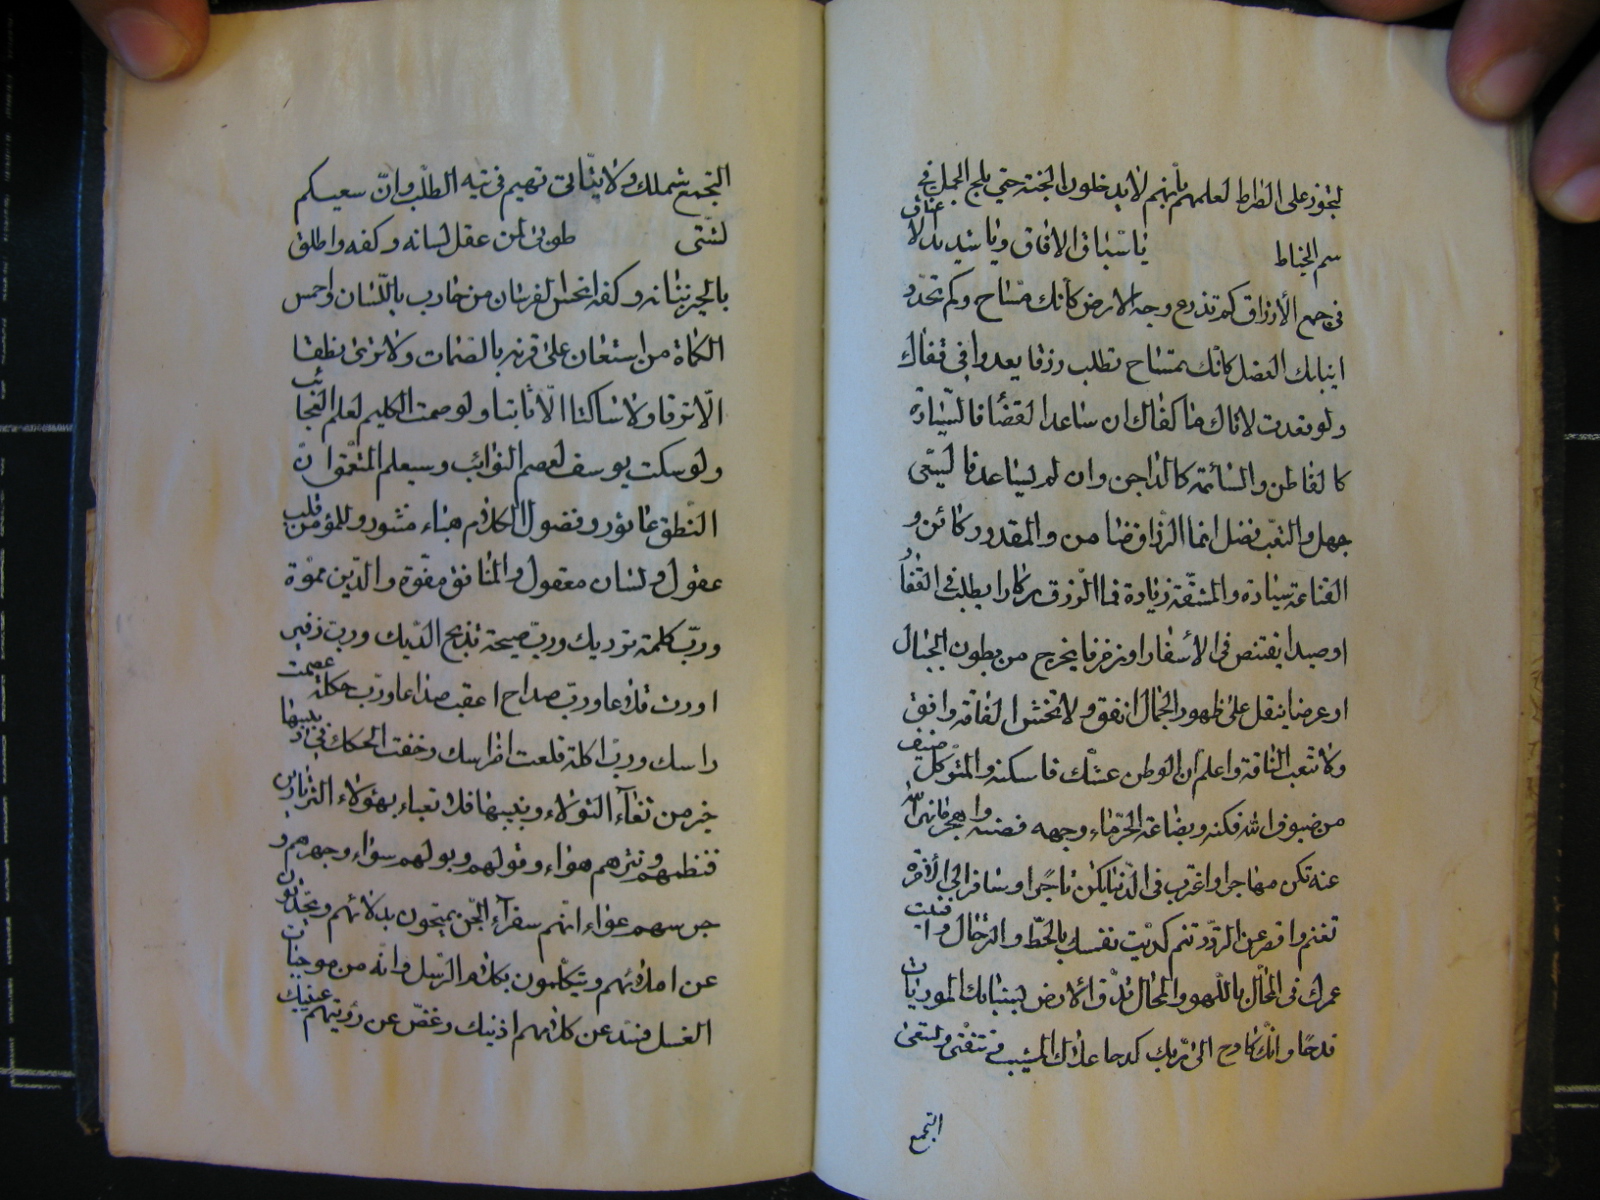 لتجوز على الطراط لعلمهم بأنهم لا يدخلون الجنة حتي يلج الجمل في
سم الخياط يا سباق الافاق ويا شديد الا
عناق
في جمع الأرزاق كم تذرع وجه الارض كأنك مساح وكم تحدد
انيابك العضل كأنك تمساح تطلب رزقا يعدوا في قفاك
ولو قعدت لاتاك ما كفاك ان ساعد القضا فالسيارة
كالقاطن والسائمة كالداجن وان لم يساعد فالسعى
جهل والتعب فضل انما الرزاق ضامن والمقدور كائن و
القناعة سيادة والمشقة زيادة فما الرزق ركازا يطلب في القفا
اوصيدا يقتنص في الأسفار او نزفا يخرج من بطون الجبال
او عرضا ينقل على ظهور الجمال انفق ولا تخش الفاقة وافق
ولا تتعب الناقة واعلم ان الوطن عشك فاسكنه والمتوكل ضيف
من ضيوف الله فكنه وبضاعة الحر ماء وجهه فصنه واهجر ما نهى الله
عنه تكن مهاجرا واغرب في الدنيا يكن تاجرا وسافر الي الأخرة
تغنم واقصر عن التردد تنم كديت نفسك بالحط والترحال وافنيت
عمرك في المحال باللهو والمحال تدق الارض بسنابك الموريات
قدحا وانك كادح الى تربك كدحا علاك المشيب
التجمع
التجمع شملك ولا يتأتى تهيم في تيه الطلب وان سعيكم
لشتى طوبى لمن عقل لسانه وكفه واطلق
بالخير بنانه وكفه اخس الفرسان من حارب باللسان واحمس
الكماة من استعان على قرنه بالصمات ولا ترى نطقا
الا نزقا ولا ساكتا الا ثابتا ولو صمت الكليم لعلم العجائب
ولو سكت يوسف لعصم النوائب وسيعلم المتعقوا ن
النطق عاثور وفضول الكلام هباء منثور وللمؤمن قلب
عقول ولسان معقول والمنافق مفوه والدين مموه
ورب كلمة ترديك ورب صيحة تذبح الديك ورب زفير
اورث قذعا ورب صداح اعقب صداعا ورب حكلة عصمت
راسك ورب اكلة قلعت اضراسك وخفت الحكل في دبيبها
خير من ثغاء التولاء ونبيبها فلا تعباء بهؤلاء الثرثارين
فنظمهم ونثرهم هواء وقولهم وبولهم سواء وجهرهم و
جرسهم عواء انهم سفراء الجن يمتحون بدلائهم ويتحدثون
عن املائهم ويتكلمون بكلام الرسل وانه من موجبات
الغسل فسد عن كلامهم اذنيك وغض عن رؤيتهم عينيك